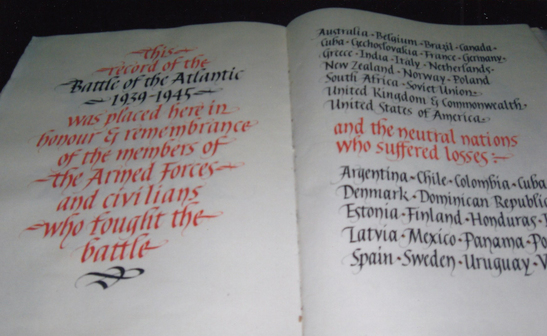 this
record of the
Battle of the Atlantic
1939-1945
was placed here in
honour & remembrance
of the members of
the Armed Forces
and civilians
who fought the
battle
Australia · Belgium · Brazil · Canada ·
Cuba · Czechoslovakia · France · Germany ·
Greece · India · Italy · Netherlands
New Zealand · Norway · Poland
South Africa · Soviet Union
United Kingdom & Commonwealth
United States of America
and the neutral nations
who suffered losses :
Argentina · Chile · Colombia · Cuba
Denmark · Dominican Republic
Estonia · Finland · Honduras ·
Latvia · Mexico · Panama ·
Spain · Sweden · Uruguay ·